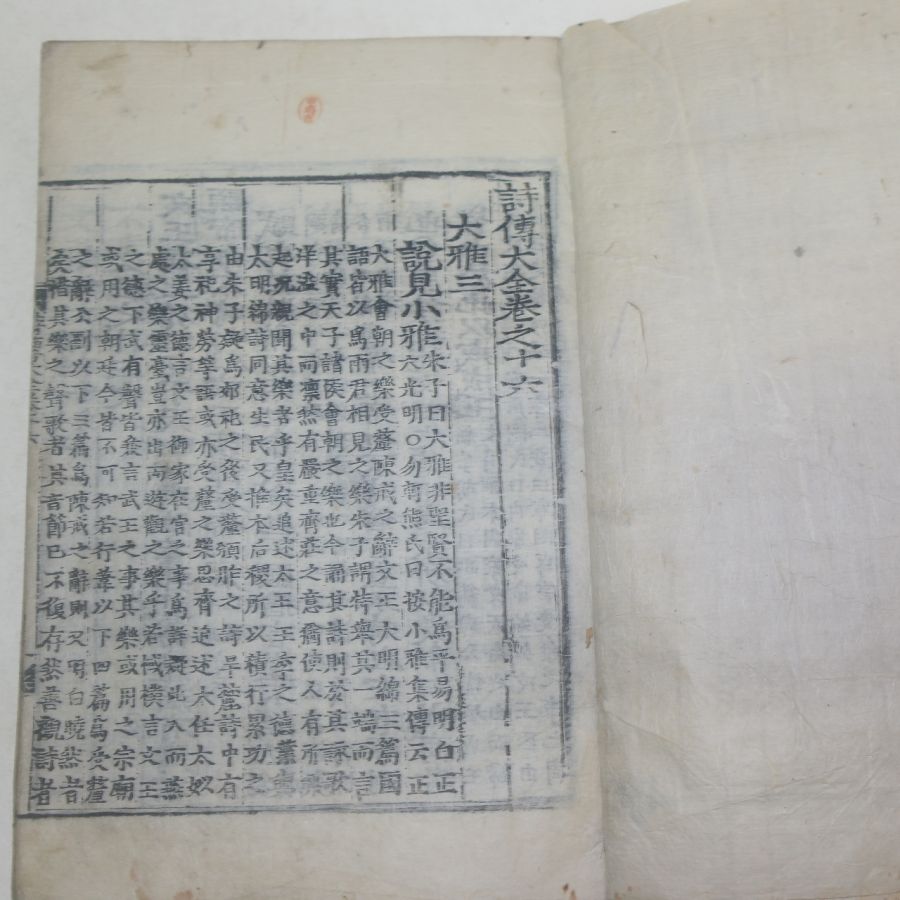 詩傳大全卷之十六
大雅三
說見小雅
朱子曰大雅非聖賢不能爲平易明白正
大光明○勿軒熊氏曰按小雅集傳云正
大雅會朝之樂受釐陳戒之辭文王大明綿三篇國
語皆以爲兩君相見之樂朱子謂特舉其一端而言
其實天子諸侯會朝之樂也今誦其詩則於其詠歌
洋溢之中而凛然有嚴重齊莊之意猶使人有所
起况親聞其樂者乎皇矣追述太王王季之德
太明綿詩同意生民又推本后稷所以積行累功之
由朱子疑爲郊祀之後受釐頒胙之詩旱麓詩中有
享祀神勞等語或亦受釐之樂思齊追述太任太姒
太姜之德言文王御家在宮之事爲詳此入而燕
處之樂靈臺豈亦出而遊觀之樂乎若棫樸言文王
之德下武有聲皆言武王之事其樂或用之宗廟
或用之朝廷今皆不可知若行葦以下四篇爲受釐
之辭公劉以下三篇爲陳戒之辭則又明白曉然者
矣惜其樂之聲歌者其言節已不復存然善觀詩者